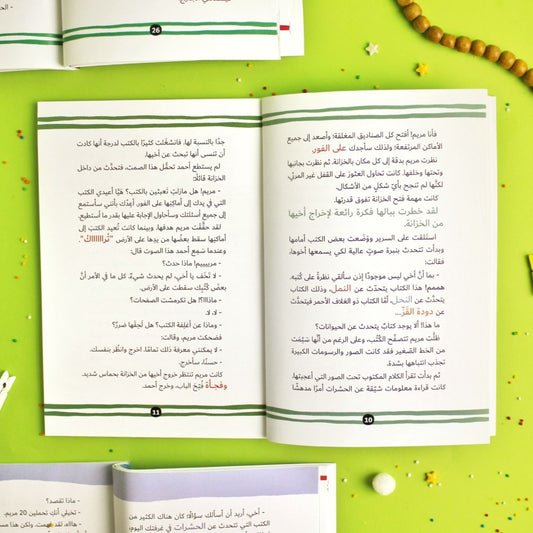 26
فأنا مريم! أفتح كل الصناديق المغلقة! وأصعد إلى جميع
الأماكن المرتفعة! ولذلك سأجدك على الفور.
نظرت مريم بدقة إلى كل مكان بالخزانة. ثم نظرت بجانبها
وتحتها وخلفها. كانت تحاول العثور على القفل غير المرئي،
لكنها لم تنجح بأيّ شكلٍ من الأشكال.
كانت مهمة فتح الخزانة تفوق قدرتها.
لقد خطرت ببالها فكرة رائعة لإخراج أخيها
من الخزانة.
استلقت على السرير ووَضعت بعض الكتب أمامها
وبدأت تتحدث بنبرة صوتٍ عالية لكي يسمعها أخوها،
فقالت:
- بما أنّ أخي ليس موجودًا إذن سألقي نظرةً على كُتبه.
هممم! هذا الكتاب يتحدّث عن النمل، وذلك الكتاب
يتحدّث عن النحل، أمّا الكتاب ذو الغلاف الأحمر فيتحدَّث
عن دودة القَزّ...
ما هذا! ألا يوجد كتابٌ يتحدث عن الحيوانات؟
ظلّت مريم تتصفّح الكُتُب، وعلى الرغم من أنّها سَئِمَت
من الخط الصّغير فقد كانت الصور والرسومات الكبيرة
تجذب انتباهها بشدة.
ثم بدأت تقرأ الكلام المكتوب تحت الصور التي أعجبتها.
كانت قراءة معلومات شيّقة عن الحشرات أمرًا مدهشًا
10
جدًا بالنسبة لها. فانشغلت كثيرًا بالكتب لدرجة أنها كادت
أن تنسى أنها تبحث عن أخيها.
لم يستطع أحمد تحمّل هذا الصمت، فتحدّث من داخل
الخزانة قائلًا:
- مريم! هل مازلتِ تعبثين بالكتب؟ هيّا أعيدي الكتب
التي في يدك إلى أماكنها على الفور. أعِدُك بأنني سأستمع
إلى جميع أسئلتك وسأحاول الإجابة عليها بقدر ما أستطيع.
لقد حقَّقَت مريم هدفها. وبينما كانت تُعيد الكتب إلى
أماكنها سقط بعضُها من يدها على الأرض
وعندما سَمِع أحمد هذا الصوت قال:
- مريييييم! ماذا حدث؟
- لا تَخَف يا أخي، لم يحدث شيءٌ. كل ما في الأمر أنّ
بعضَ كُتُبِك سقطت على الأرض.
- ماذااا؟! هل تكرمشت الصفحات؟
- لا، لا.
- وماذا عن أغلِفة الكتب؟ هل لَحِقَها ضررٌ؟
فضحكت مريم، وقالت:
- لا يمكنني معرفة ذلك تمامًا. اخرج وانظر بنفسك.
- حسنًا، سأخرج.
كانت مريم تنتظر خروج أخيها من الخزانة بحماس شديد.
وفجأة فُتِحَ الباب، وخرج أحمد.
11
- أخي، أريد أن أسألك سؤالًا: كان هناك الكثير من
الكتب التي تتحدث عن الحشرات في غرفتك اليوم،
- ماذا تقصد؟
- تخيلي أنكِ تحملين 20 مريم.